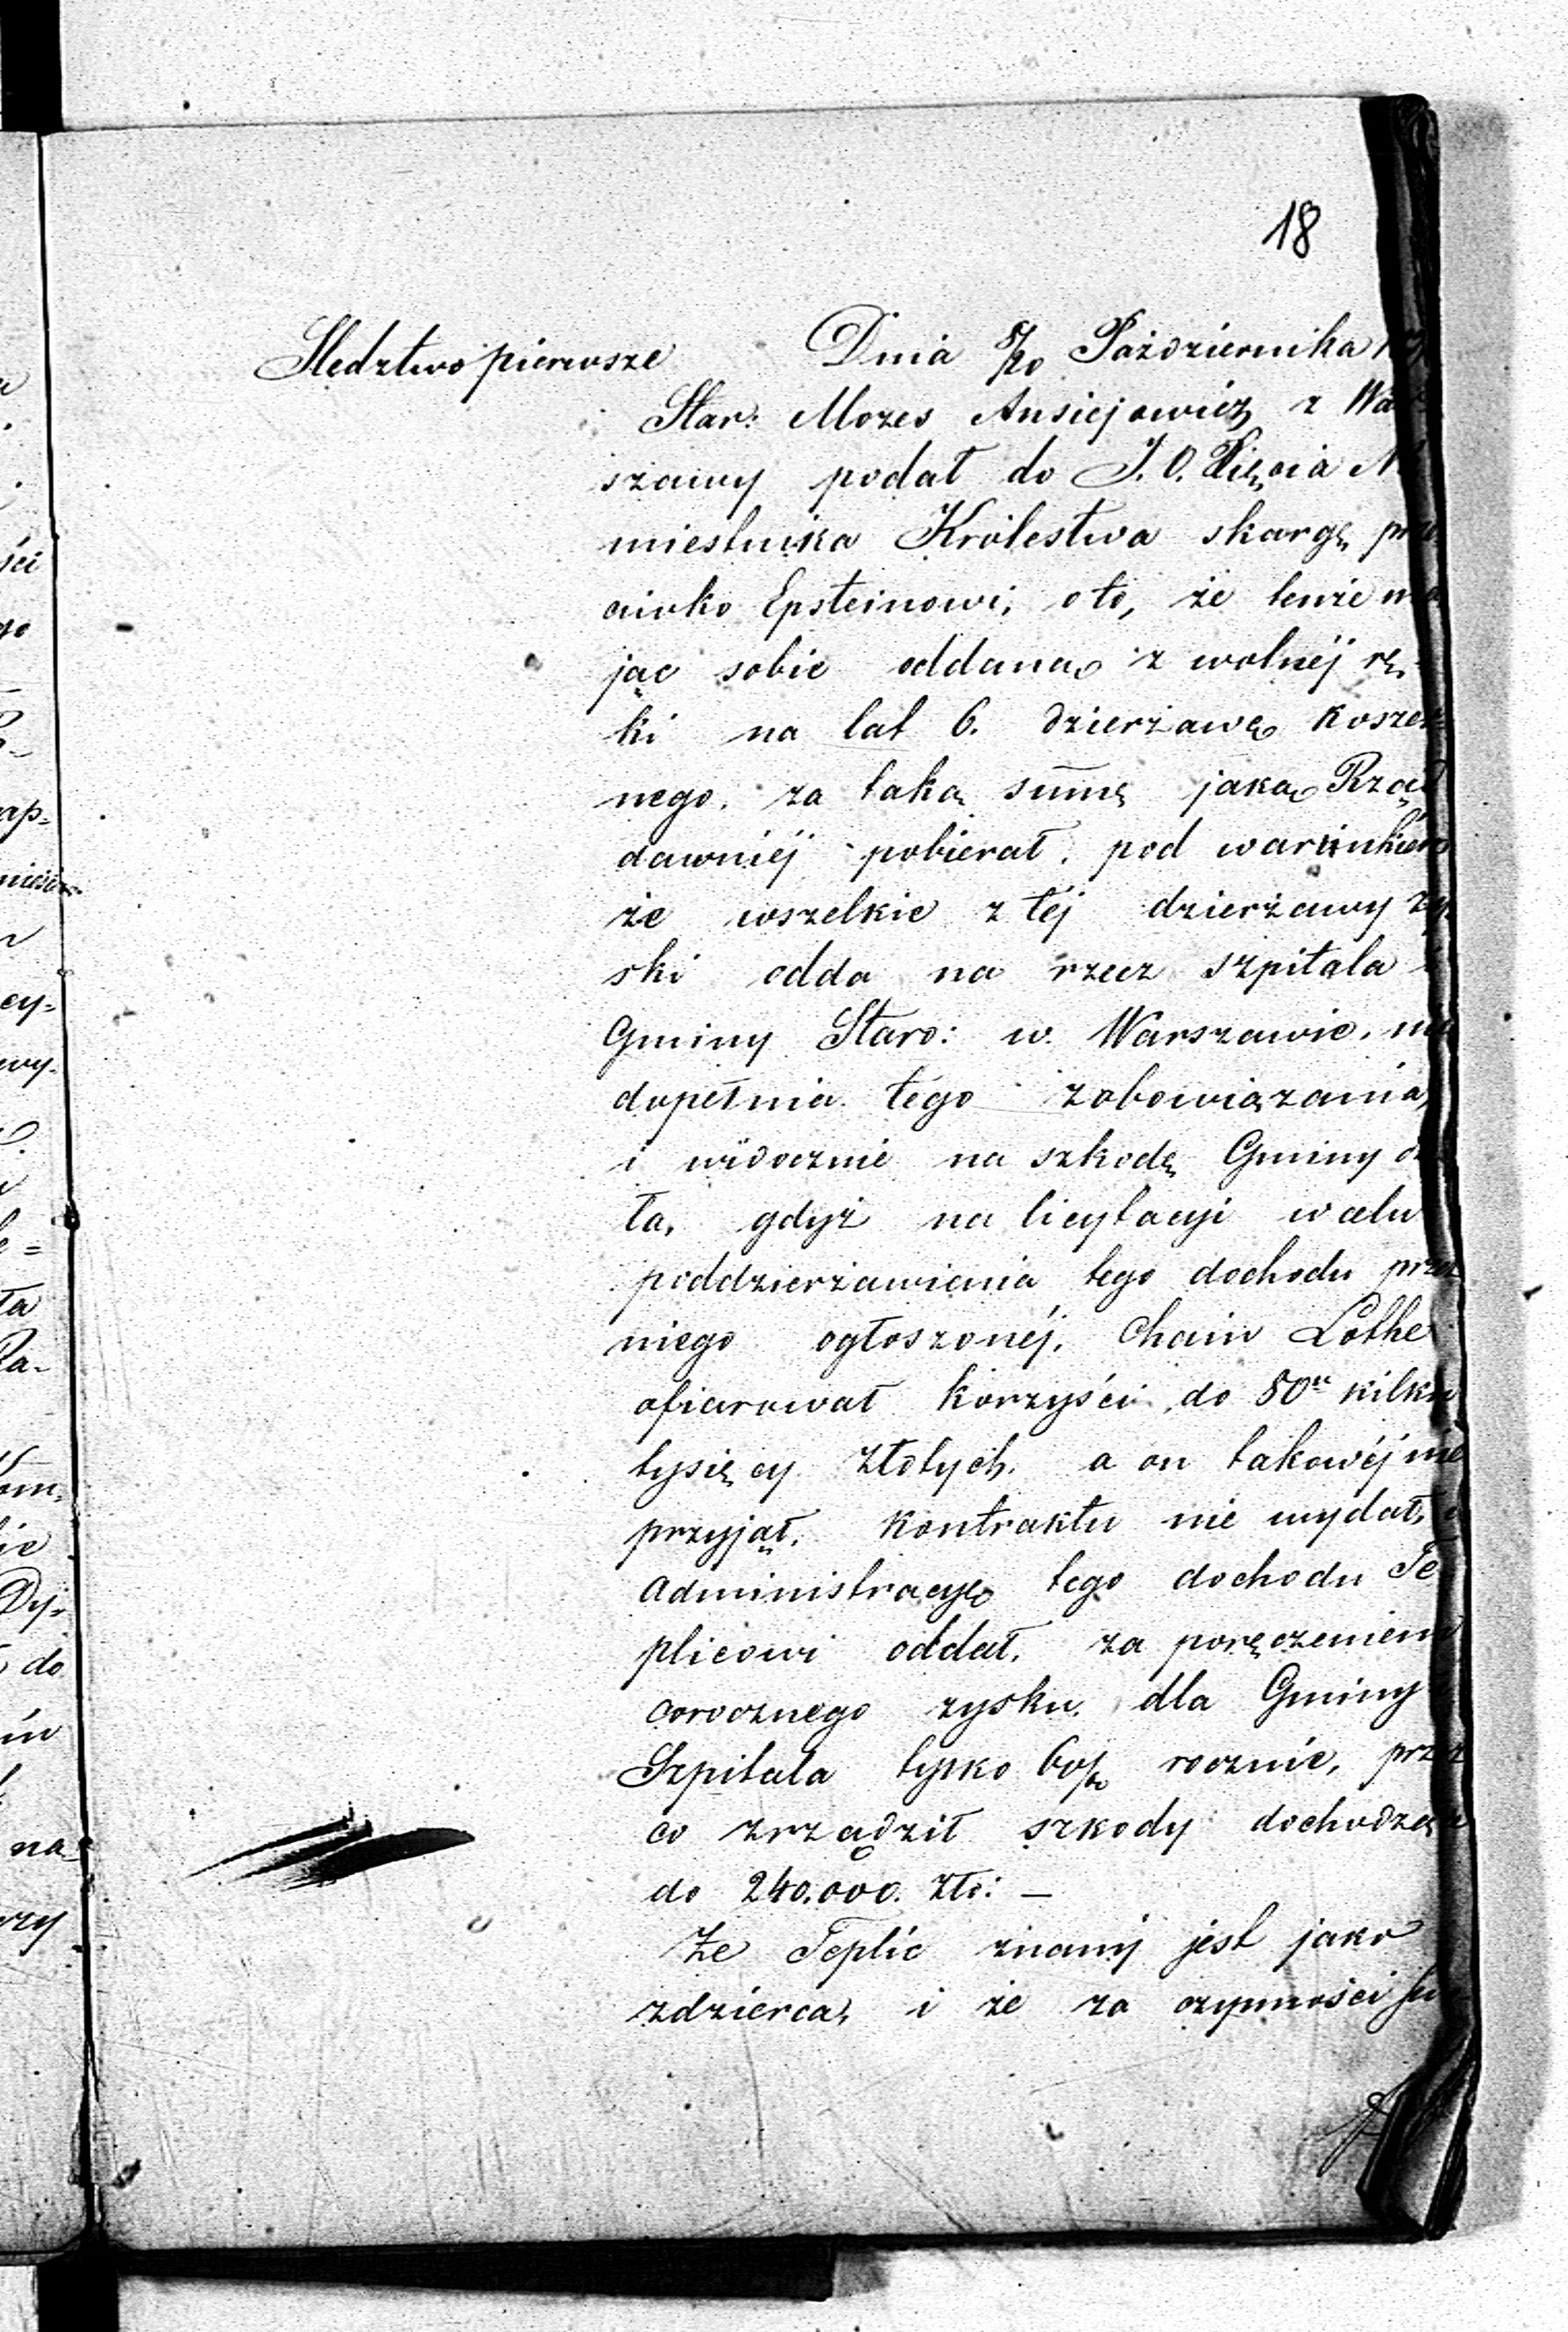 18
Śledztwo pierwsze
Dnia Października
Star: Mozes Ansiejowicz z War
szawy podał do J. O. Xięcia
miestnika Królestwa skargę prze
ciwko Epsteinowi, o to, że tenże ma
jąc sobie oddaną z wolnéj rę-
ki na lat 6. dzierżawę koszer
nego, za taką summę jaką Rząd
dawniéj pobierał, pod warunkiem
że wszelkie z téj dzierżawy zy
ski odda na rzecz szpitala i
Gminy Staro: w Warszawie, nie
dopełnia tego zobowiązania,
i widocznie na szkodę Gminy
ła, gdyż na licytacyi w celu
poddzierżawienia tego dochodu przez
niego ogłoszonéj, Chaim Lothe
ofiarował korzyści do 80u kilku
tysięcy złotych, a on takowéj nie
przyjął, kontraktu nie wydał,
administracyę tego dochodu Te
plicowi oddał, za poręczeniem
corocznego zysku dla Gminy
Szpitala tylko rocznie, przez
co zrządził szkody dochodzą
do 240.000. Zło: —
Że Teplic znany jest jako
zdzierca, i że za czynności